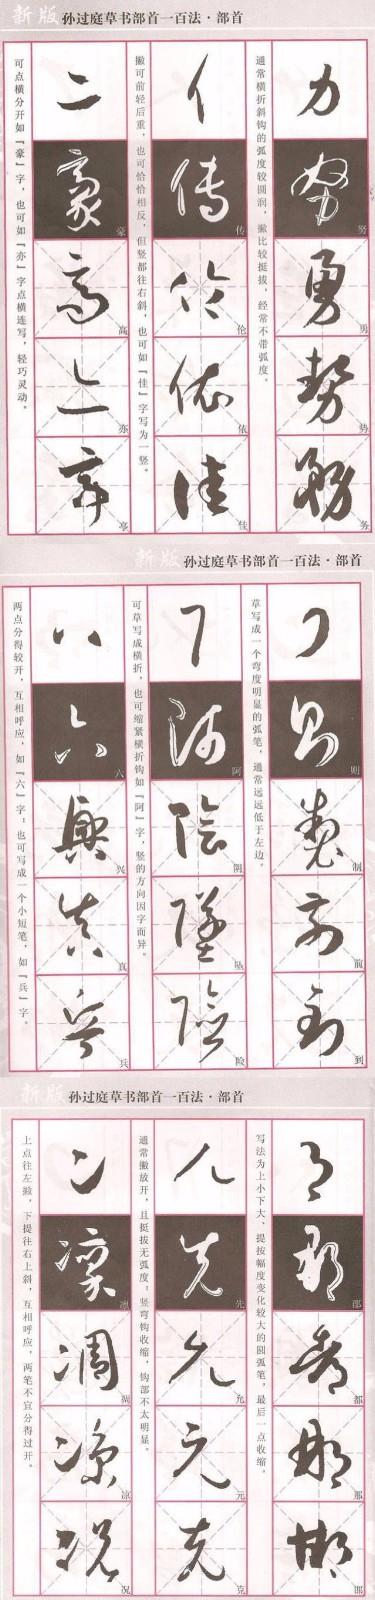 新版 孙过庭草书部首一百法·部首
通常横折斜钩的弧度较圆润，撇比较挺拔，经常不带弧度。
力
努
勇
势
务
撇可前轻后重，也可恰恰相反，但竖都往右斜，也可如『佳』字写为一竖。
亻
传
伦
依
佳
可点横分开如『豪』字，也可如『亦』字点横连写，轻巧灵动。
亠
豪
高
亦
亭
新版 孙过庭草书部首一百法·部首
草写成一个弯度明显的弧笔，通常远远低于左边。
刂
则
制
前
到
可草写成横折，也可缩紧横折钩如『阿』字，竖的方向因字而异。
阝
阿
阴
坠
险
两点分得较开，互相呼应，如『六』字；也可写成一个小短笔，如『兵』字。
八
六
兴
真
兵
新版 孙过庭草书部首一百法·部首
写法为上小下大、提按幅度变化较大的圆弧笔，最后一点收缩。
阝
邵
都
那
邯
通常撇放开，且挺拔无弧度；竖弯钩收缩，钩部不太明显。
儿
先
允
元
克
上点往左撇，下提往右上斜，互相呼应，两笔不宜分得过开。
冫
凛
凋
凉
况